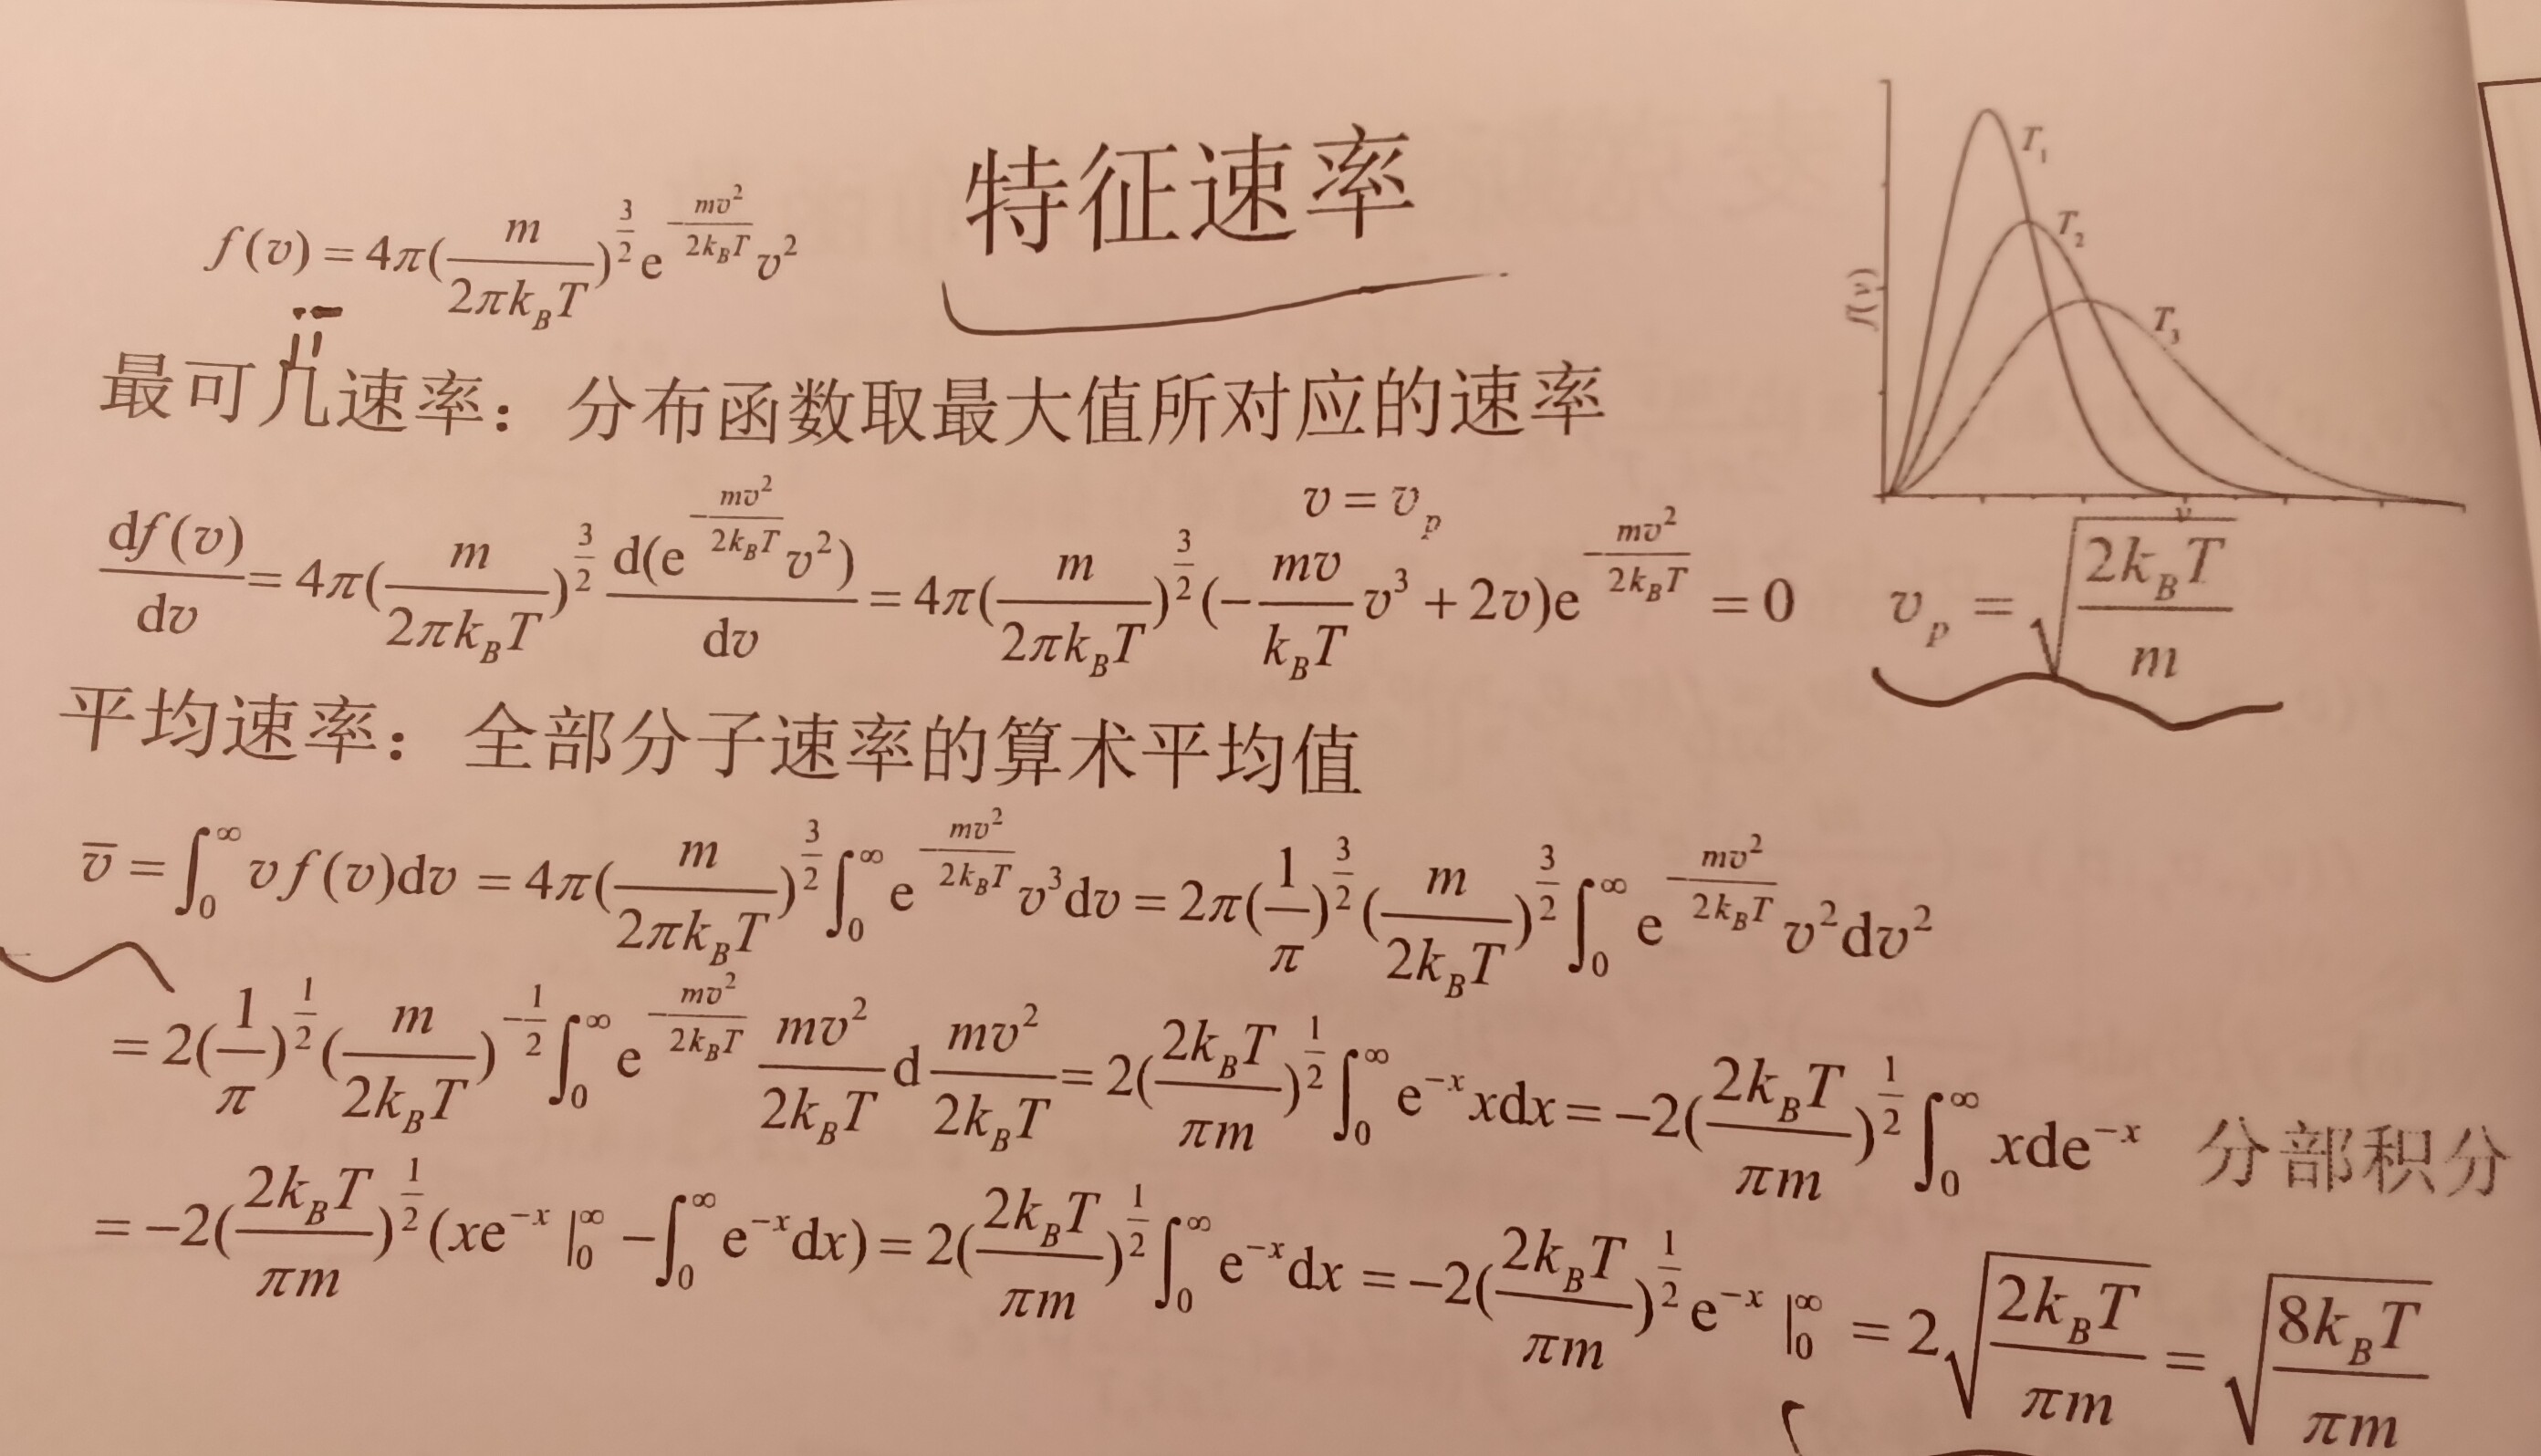 特征速率
f(v) = 4π(m/(2πk_BT))^(3/2) e^(-mv²/(2k_BT)) v²
T₁
T₂
T₃
f(v)
v
最可几速率：分布函数取最大值所对应的速率
v = v_p
df(v)/dv = 4π(m/(2πk_BT))^(3/2) d(e^(-mv²/(2k_BT)) v²)/dv = 4π(m/(2πk_BT))^(3/2) (-(mv/(k_BT))v³ + 2v)e^(-mv²/(2k_BT)) = 0 v_p = √(2k_BT/m)
平均速率：全部分子速率的算术平均值
v̄ = ∫₀^∞ v f(v)dv = 4π(m/(2πk_BT))^(3/2) ∫₀^∞ e^(-mv²/(2k_BT)) v³dv = 2π(1/π)^(3/2) (m/(2k_BT))^(3/2) ∫₀^∞ e^(-mv²/(2k_BT)) v²dv²
= 2(1/π)^(1/2) (m/(2k_BT))^(-1/2) ∫₀^∞ e^(-mv²/(2k_BT)) mv²/(2k_BT) d mv²/(2k_BT) = 2(2k_BT/(πm))^(1/2) ∫₀^∞ e^(-x) xdx = -2(2k_BT/(πm))^(1/2) ∫₀^∞ xde^(-x) 分部积分
= -2(2k_BT/(πm))^(1/2) (xe^(-x) |₀^∞ - ∫₀^∞ e^(-x)dx) = 2(2k_BT/(πm))^(1/2) ∫₀^∞ e^(-x)dx = -2(2k_BT/(πm))^(1/2) e^(-x) |₀^∞ = 2√(2k_BT/(πm)) = √(8k_BT/(πm))